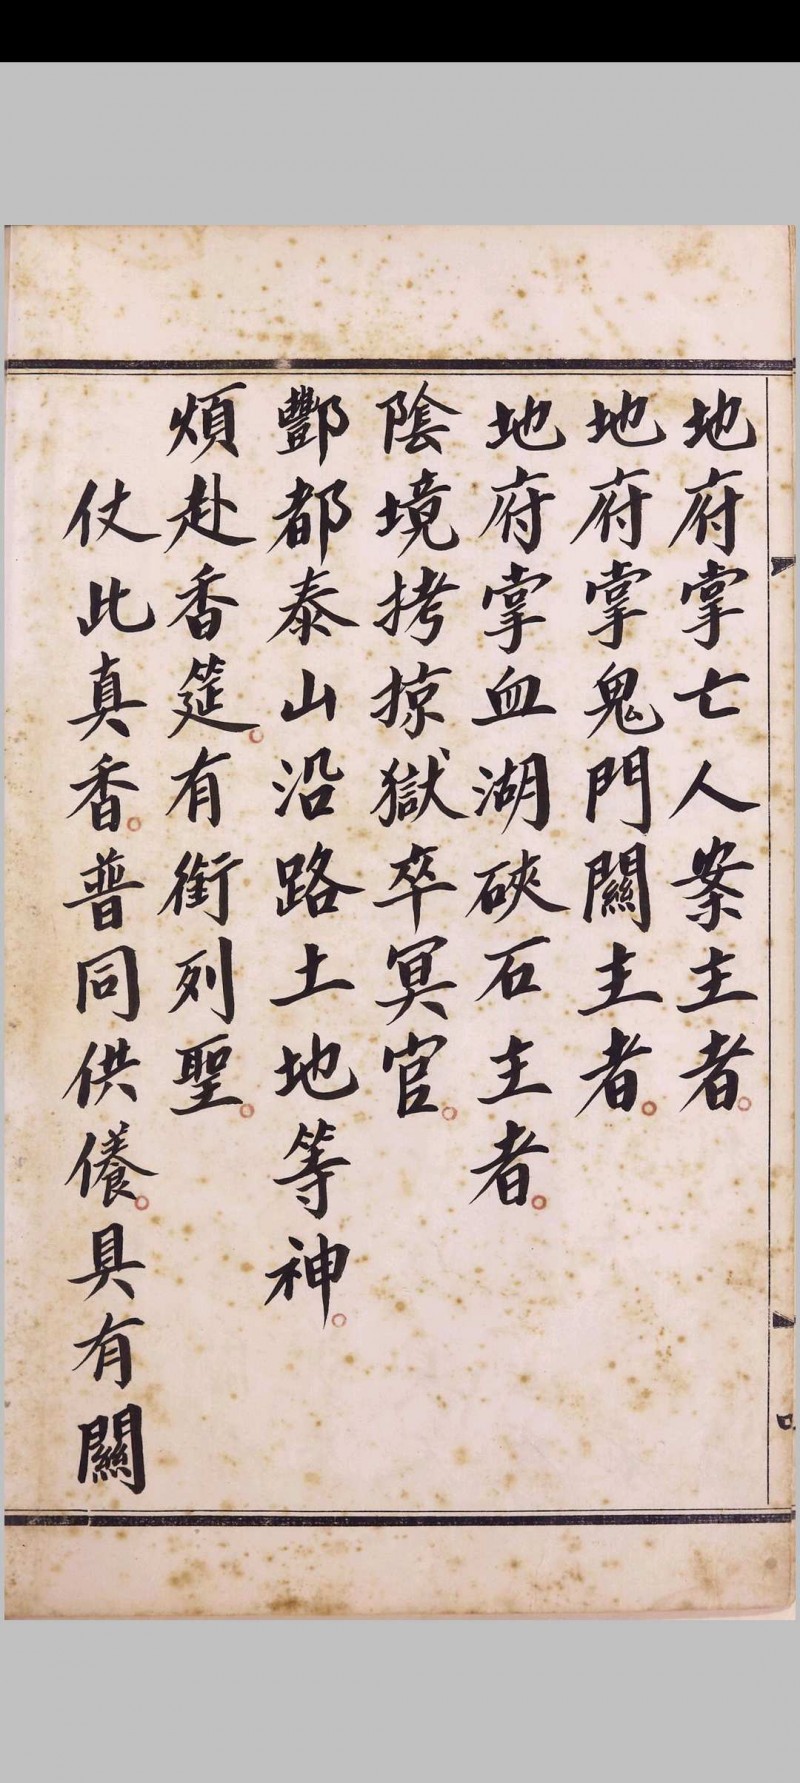 地府掌亡人案主者。
地府掌鬼門關主者。
地府掌血湖硤石主者。
陰境拷掠獄卒冥官。
酆都泰山沿路土地等神。
煩赴香筵。有銜列聖。
仗此真香。普同供養。具有關